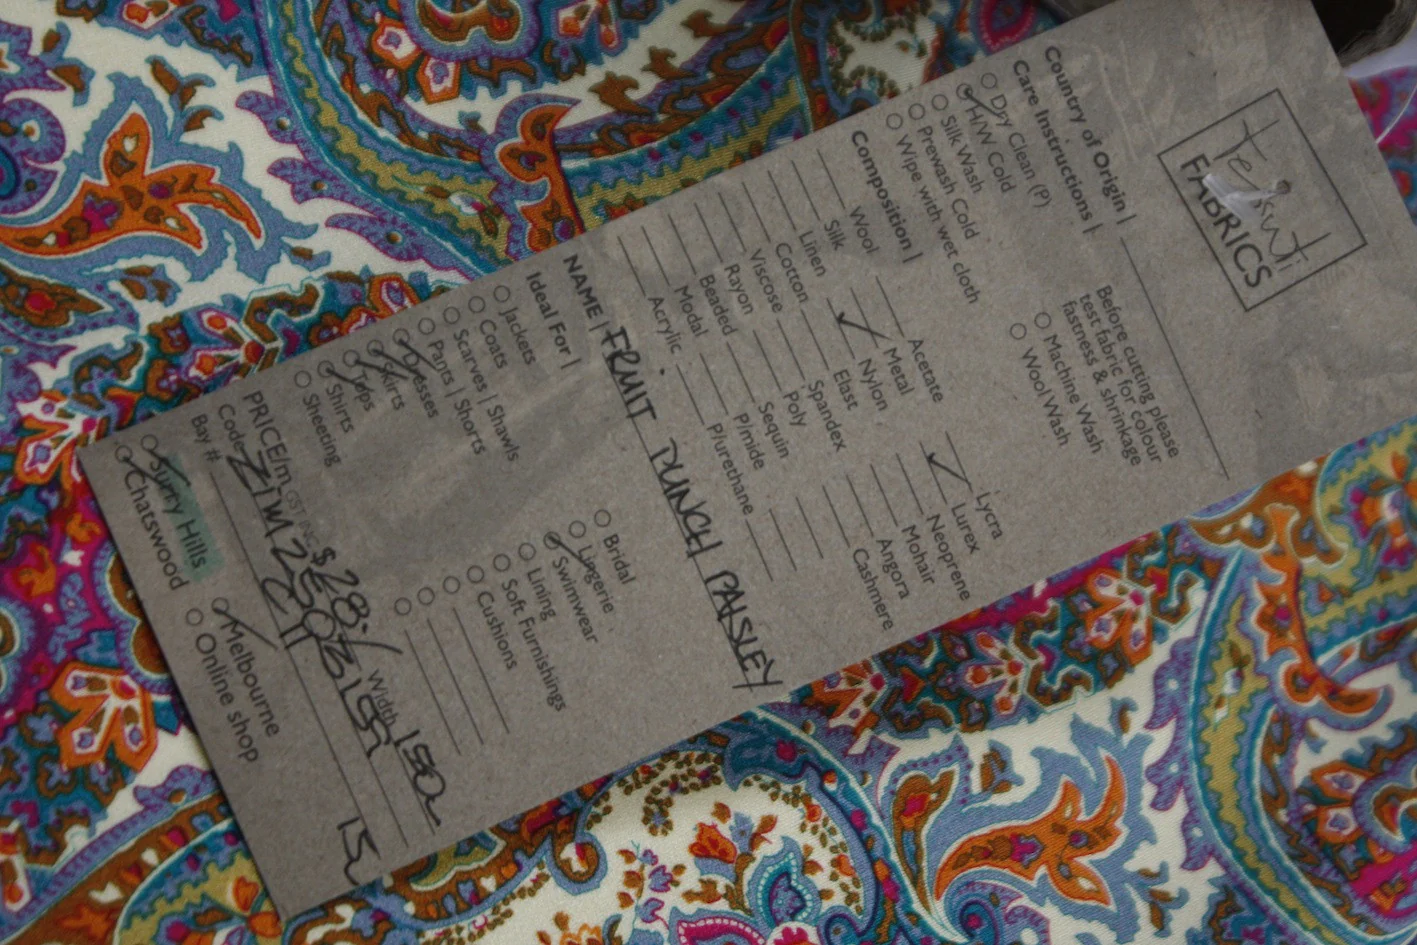 Tessuti
FABRICS
Country of Origin |
Care Instructions |
Dry Clean (P)
H/W Cold
Silk Wash
Prewash Cold
Wipe with wet cloth
Before cutting please
test fabric for colour
fastness & shrinkage
Machine Wash
Wool Wash
Composition |
Wool
Silk
Linen
Cotton
Viscose
Rayon
Beaded
Modal
Acrylic
Acetate
Metal
Nylon
Elast
Spandex
Poly
Sequin
P/mide
P/urethane
Lycra
Lurex
Neoprene
Mohair
Angora
Cashmere
NAME | FRUIT PUNCH PAISLEY
Ideal For |
Jackets
Coats
Scarves | Shawls
Pants | Shorts
Dresses
Skirts
Tops
Shirts
Sheeting
Bridal
Lingerie
Swimwear
Lining
Soft Furnishings
Cushions
PRICE/m GST INC $28.- Width 150
Code
Bay #
Surry Hills
Chatswood
Melbourne
Online shop